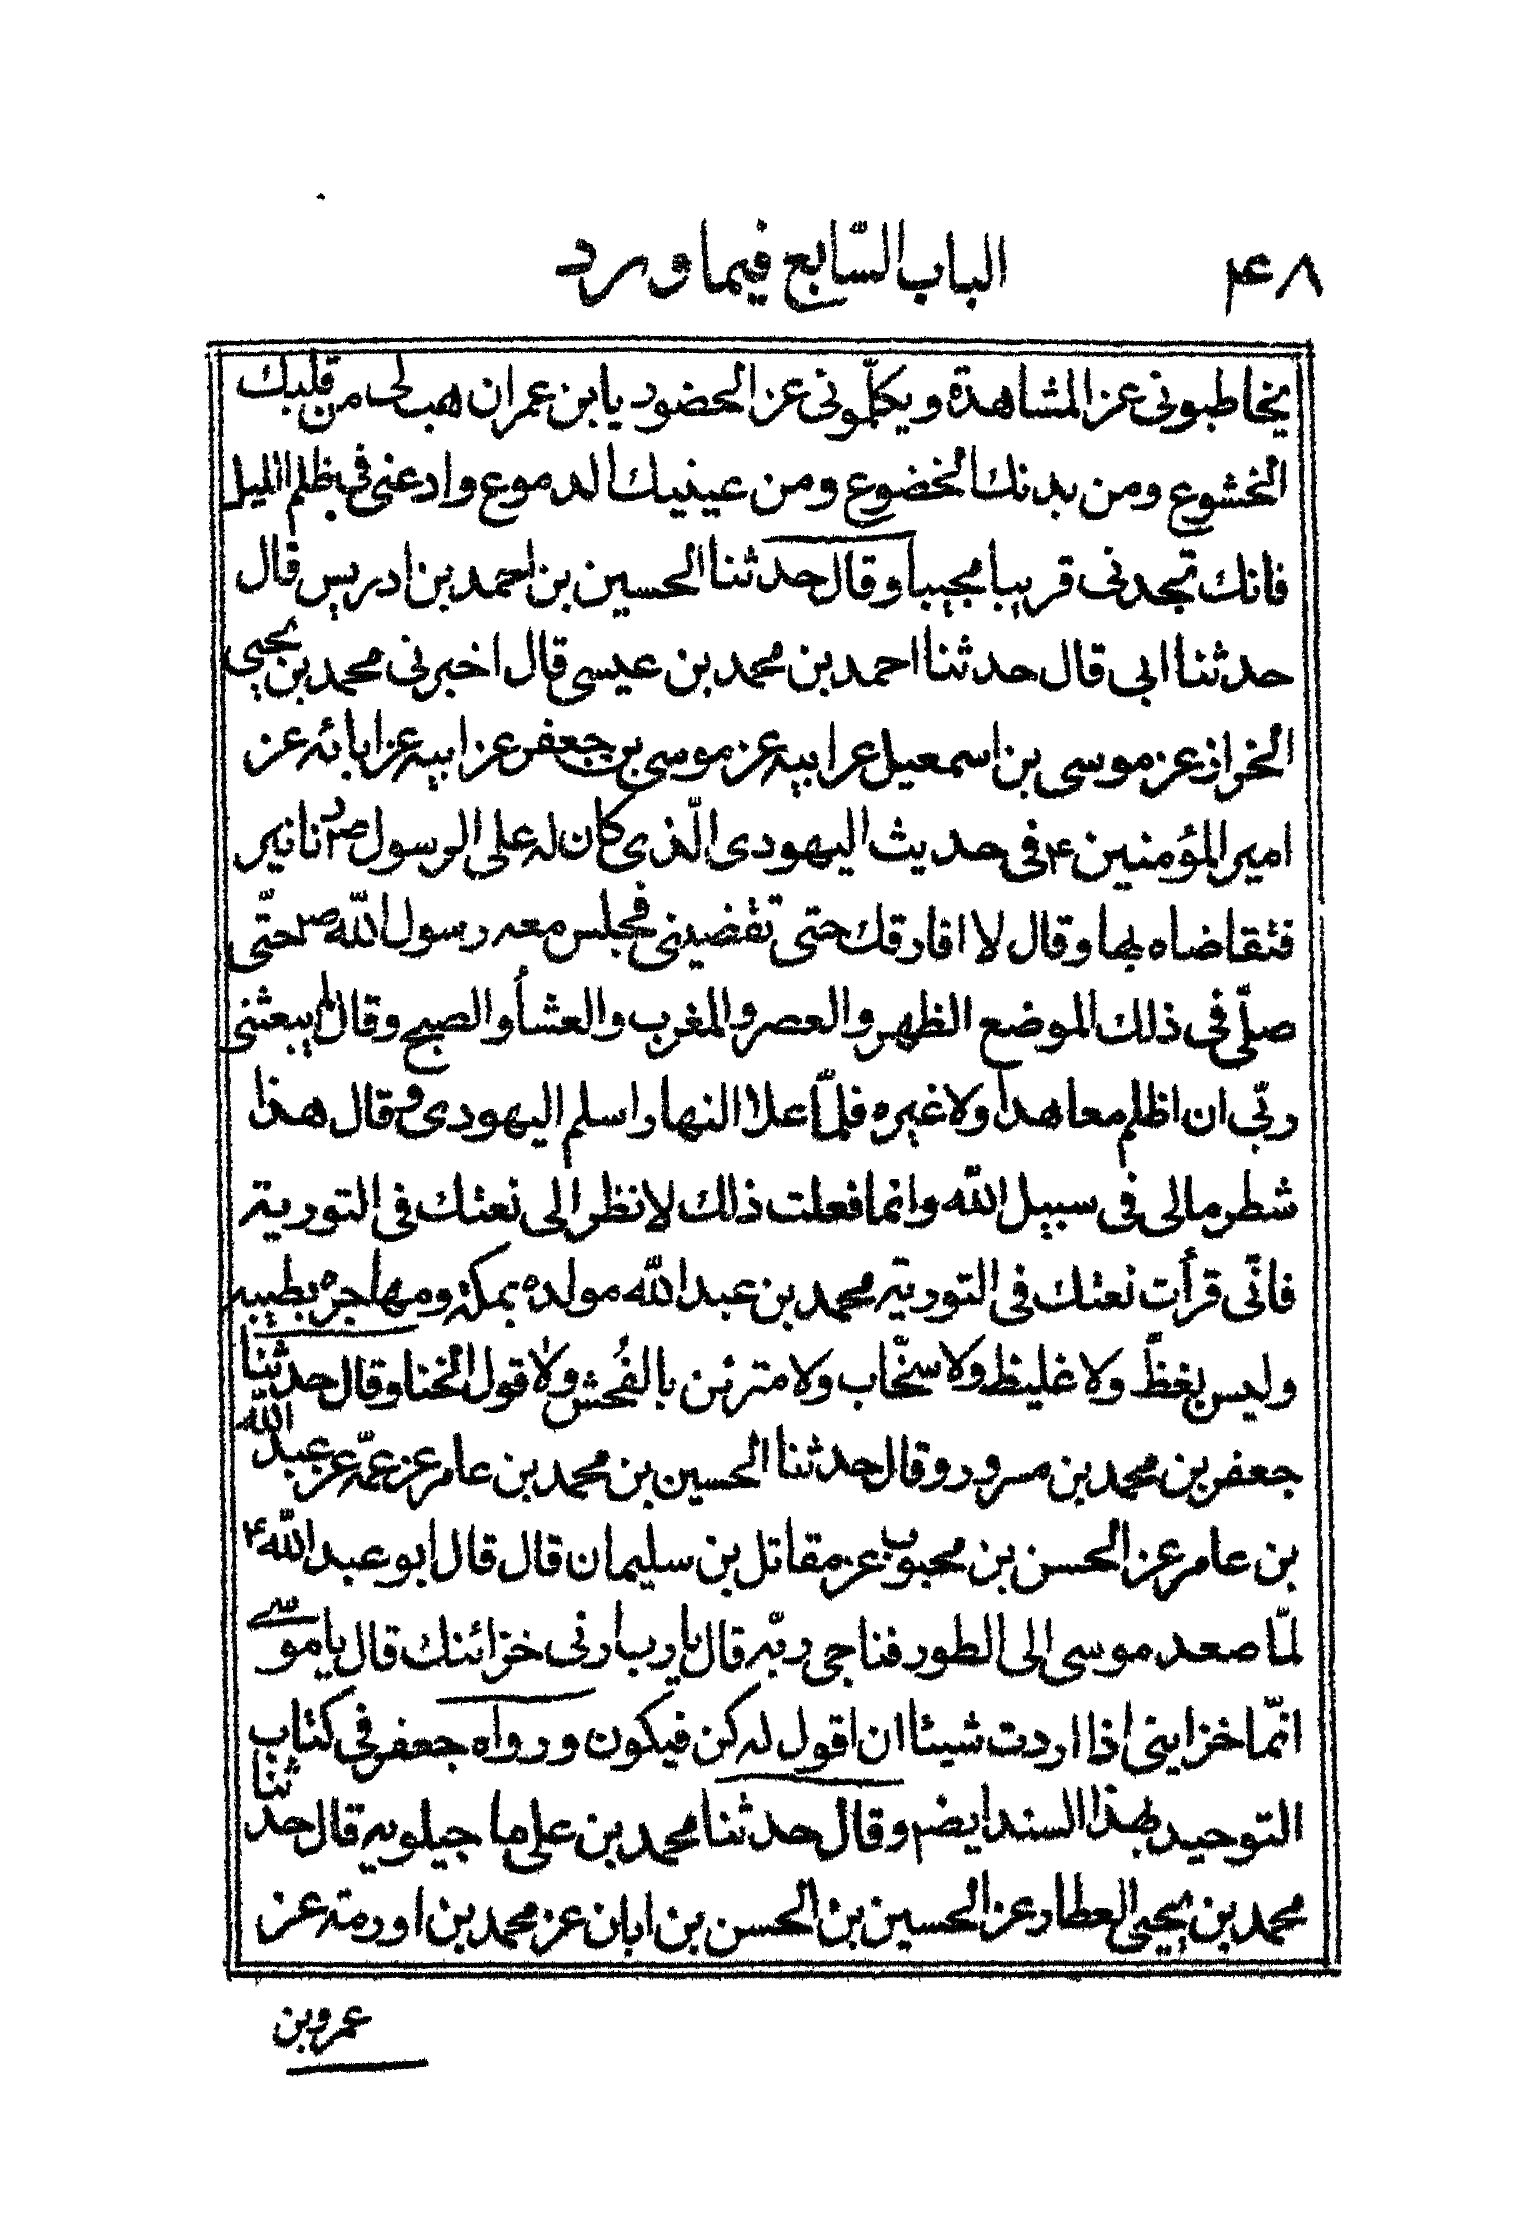 ۴۸
الباب السّابع فيما ورد
يخاطبونى عن المشاهدة ويكلّمونى عن الحضور يا بن عمران هب لى من قلبك
الخشوع ومن بدنك الخضوع ومن عينيك الدموع وادعنى فى ظلم الليل
فانك تجدنى قريبا مجيبا وقال حدثنا الحسين بن احمد بن ادريس قال
حدثنا ابى قال حدثنا احمد بن محمد بن عيسى قال اخبرنى محمد بن يحيى
الخراز عن موسى بن اسمعيل عن ابيه عن موسى بن جعفر عن ابيه عن ابائه عن
امير المؤمنين ۴ فى حديث اليهودى الّذى كان له على الرسول ص دنانير
فتقاضاه بها وقال لا افارقك حتى تقضينى فجلس معه رسول الله ص حتّى
صلّى فى ذلك الموضع الظهر والعصر والمغرب والعشأ والصبح وقال لم يبعثنى
ربّى ان اظلم معاهدا ولا غيره فلمّا علا النهار اسلم اليهودى وقال هذا
شطر مالى فى سبيل الله وانما فعلت ذلك لانظر الى نعتك فى التورية
فانّى قرأت نعتك فى التورية محمد بن عبد الله مولده بمكة ومهاجره بطيبه
وليس بفظّ ولا غليظ ولا سخّاب ولا مترئن بالفحش ولا قول الخنا وقال حدثنا
جعفر بن محمد بن مسرور وقال حدثنا الحسين بن محمد بن عامر عن عمّه عن عبد الله
بن عامر عن الحسن بن محبوب عن مقاتل بن سليمان قال قال ابو عبد الله ۴
لمّا صعد موسى الى الطور فناجى ربّه قال يا رب ارنى خزائنك قال يا موسى
انّما خزاينى اذا اردت شيئا ان اقول له كن فيكون ورواه جعفر فى كتاب
التوحيد بهذا السند ايضم وقال حدثنا محمد بن على ما جيلويه قال حدثنا
محمد بن يحيى العطار عن الحسين بن الحسن بن ابان عن محمد بن اورمة عن
عمرو بن